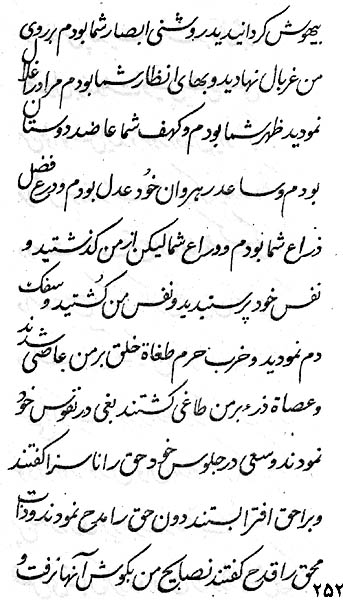 بیهوش گردانیدید روشنی ابصار شما بودم بر روی
من غربال نهادید و بهای انظار شما بودم مرا در اغلال
نمودید ظهر شما بودم و کهف شما عاضد دوستان من
بودم و ساعد رهروان خود عدل بودم و درع فضل
ذراع شما بودم و دراع شما لیکن از من گذشتید و
نفس خود پرستیدید و نفس من کُشتید و سفک
دم نمودید و خرب حرم طغاة خلق بر من عاصی شدند
و عصاة ذرء بر من طاغی گشتند بغی در نفوس خود
نمودند و سعی در جلوس خود حق را ناسزا گفتند
و بر احق افترا بستند دون حق را مدح نمودند و ذات
محق را قدح گفتند نصایح من بگوش آنها نرفت و
۲۵۲